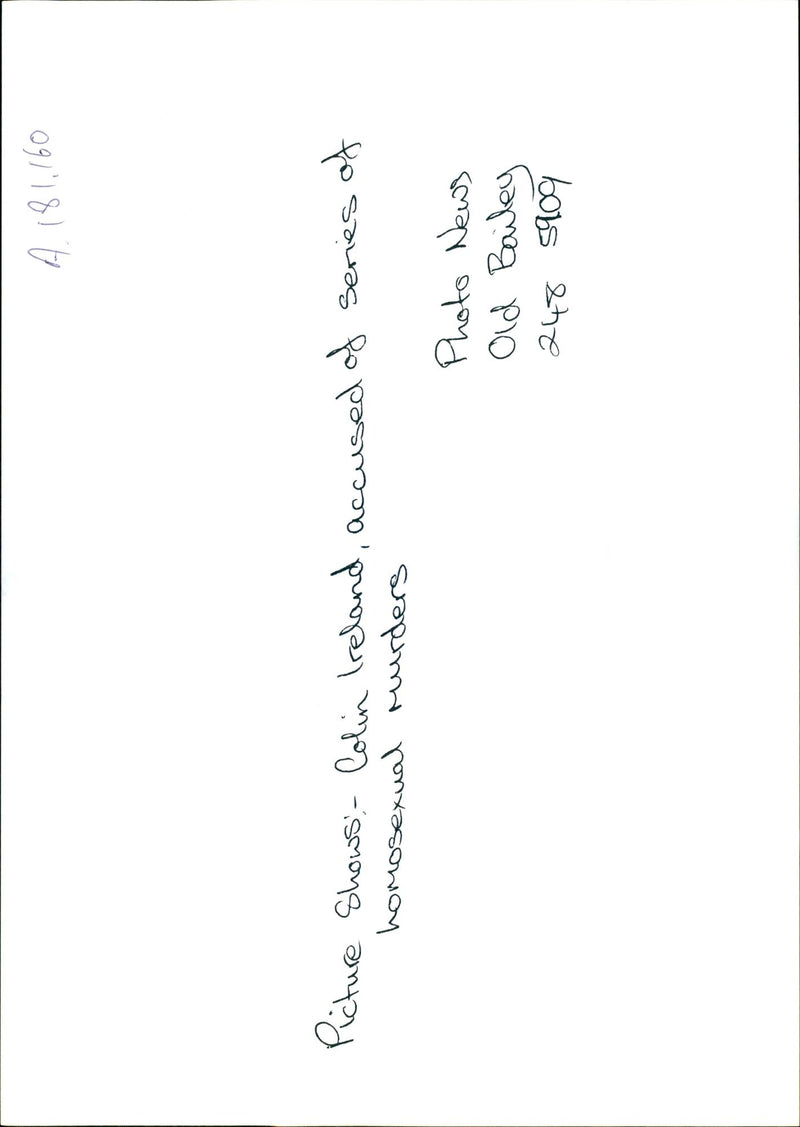 A.181,160
Picture Shows:- Colin Ireland, accused of series of
homosexual murders
Photo News
Old Bailey
248 5909